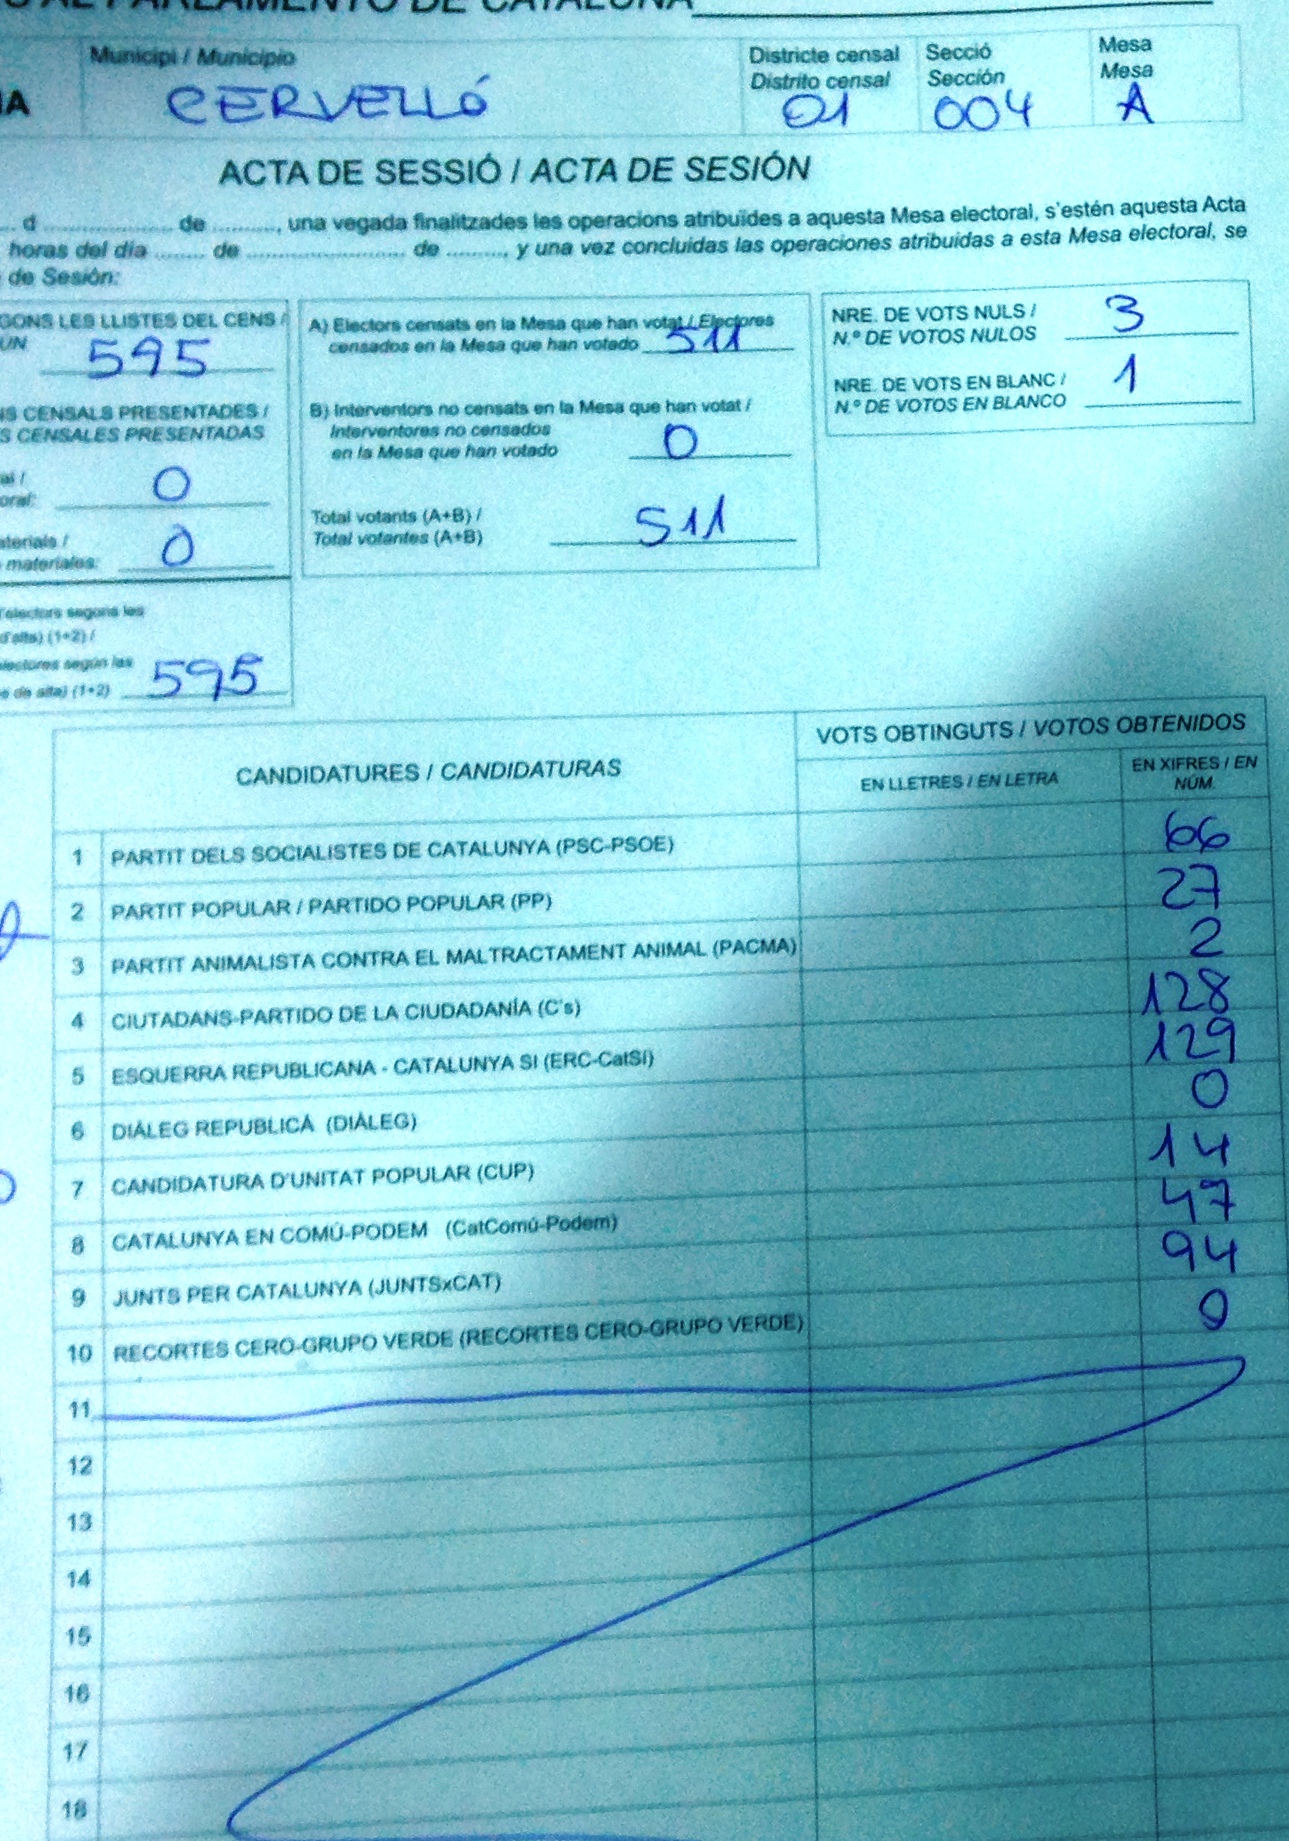 AL PARLAMENTO DE CATALUÑA
Municipi / Municipio
CERVELLÓ
Districte censal
Distrito censal
01
Secció
Sección
004
Mesa
Mesa
A
ACTA DE SESSIÓ / ACTA DE SESIÓN
d ........ de ........, una vegada finalitzades les operacions atribuïdes a aquesta Mesa electoral, s'estén aquesta Acta
horas del día ........ de ........ de ........, y una vez concluidas las operaciones atribuidas a esta Mesa electoral, se
de Sesión:
GONS LES LLISTES DEL CENS /
ÚN
595
NS CENSALS PRESENTADES /
S CENSALES PRESENTADAS
al /
oral:
0
aterials /
materiales:
0
d'electors segons les
d'alta) (1+2) /
lectores según las
s de alta) (1+2)
595
A) Electors censats en la Mesa que han votat / Electores
censados en la Mesa que han votado 511
B) Interventors no censats en la Mesa que han votat /
Interventores no censados
en la Mesa que han votado 0
Total votants (A+B) /
Total votantes (A+B) 511
NRE. DE VOTS NULS /
N.º DE VOTOS NULOS 3
NRE. DE VOTS EN BLANC /
N.º DE VOTOS EN BLANCO 1
CANDIDATURES / CANDIDATURAS
VOTS OBTINGUTS / VOTOS OBTENIDOS
EN LLETRES / EN LETRA
EN XIFRES / EN
NÚM.
1 PARTIT DELS SOCIALISTES DE CATALUNYA (PSC-PSOE) 66
2 PARTIT POPULAR / PARTIDO POPULAR (PP) 27
3 PARTIT ANIMALISTA CONTRA EL MALTRACTAMENT ANIMAL (PACMA) 2
4 CIUTADANS-PARTIDO DE LA CIUDADANÍA (C's) 128
5 ESQUERRA REPUBLICANA - CATALUNYA SI (ERC-CatSí) 129
6 DIÀLEG REPUBLICÀ (DIÀLEG) 0
7 CANDIDATURA D'UNITAT POPULAR (CUP) 14
8 CATALUNYA EN COMÚ-PODEM (CatComú-Podem) 47
9 JUNTS PER CATALUNYA (JUNTSxCAT) 94
10 RECORTES CERO-GRUPO VERDE (RECORTES CERO-GRUPO VERDE) 0
11
12
13
14
15
16
17
18